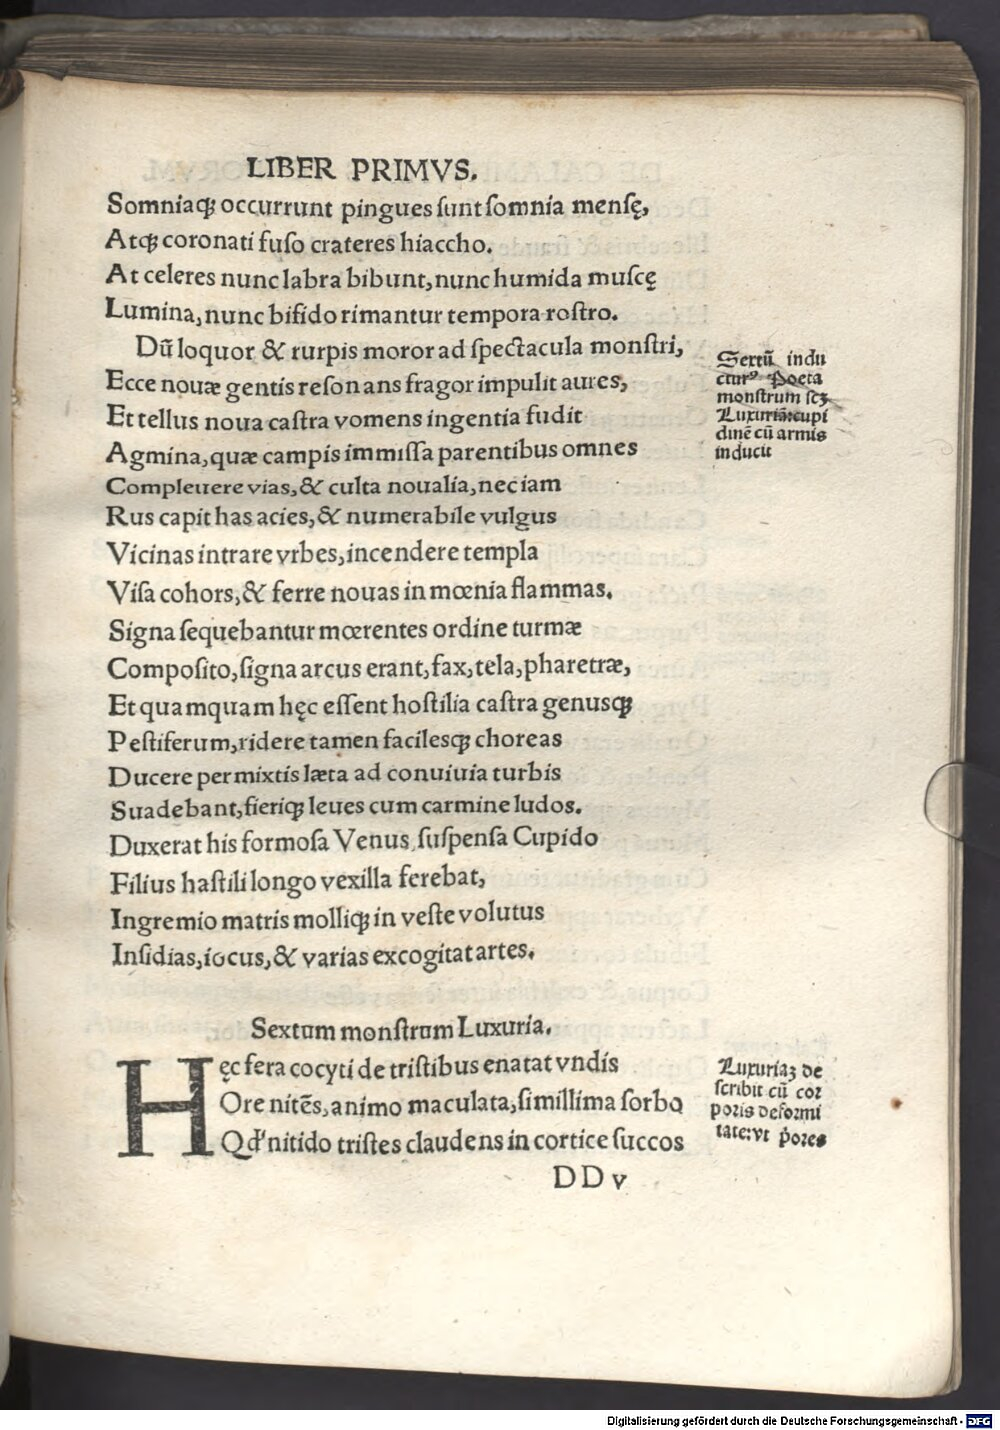 LIBER PRIMVS.
Somniaqꝫ occurrunt pingues ſunt ſomnia menſę,
Atqꝫ coronati fuſo crateres hiaccho.
At celeres nunc labra bibunt, nunc humida muſcę
Lumina, nunc bifido rimantur tempora roſtro.
Dū loquor & rurpis moror ad ſpectacula monſtri,
Ecce nouæ gentis reſonans fragor impulit aures,
Et tellus noua caſtra vomens ingentia fudit
Agmina, quæ campis immiſſa parentibus omnes
Compleuere vias, & culta noualia, nec iam
Rus capit has acies, & numerabile vulgus
Vicinas intrare vrbes, incendere templa
Viſa cohors, & ferre nouas in mœnia flammas.
Signa ſequebantur mœrentes ordine turmæ
Compoſito, ſigna arcus erant, fax, tela, pharetræ,
Et quamquam hęc eſſent hoſtilia caſtra genusqꝫ
Peſtiferum, ridere tamen facilesqꝫ choreas
Ducere permixtis læta ad conuiuia turbis
Suadebant, fieriqꝫ leues cum carmine ludos.
Duxerat his formoſa Venus, ſuſpenſa Cupido
Filius haſtili longo vexilla ferebat,
Ingremio matris molliqꝫ in veſte volutus
Inſidias, iocus, & varias excogitat artes.
Sextū indu
citurꝰ Poeta
monstrum scꝫ
Luxuriā: cupi
dinē cū armis
inducit
Sextum monſtrum Luxuria.
Hęc fera cocyti de triſtibus enatat vndis
Ore nitēs, animo maculata, ſimillima ſorbo
Qd' nitido triſtes claudens in cortice ſuccos
Luxuriaꝫ de
ſcribit cū cor
poris deformi
tate: vt p̄ores
DD v
Digitalisierung gefördert durch die Deutsche Forschungsgemeinschaft - DFG